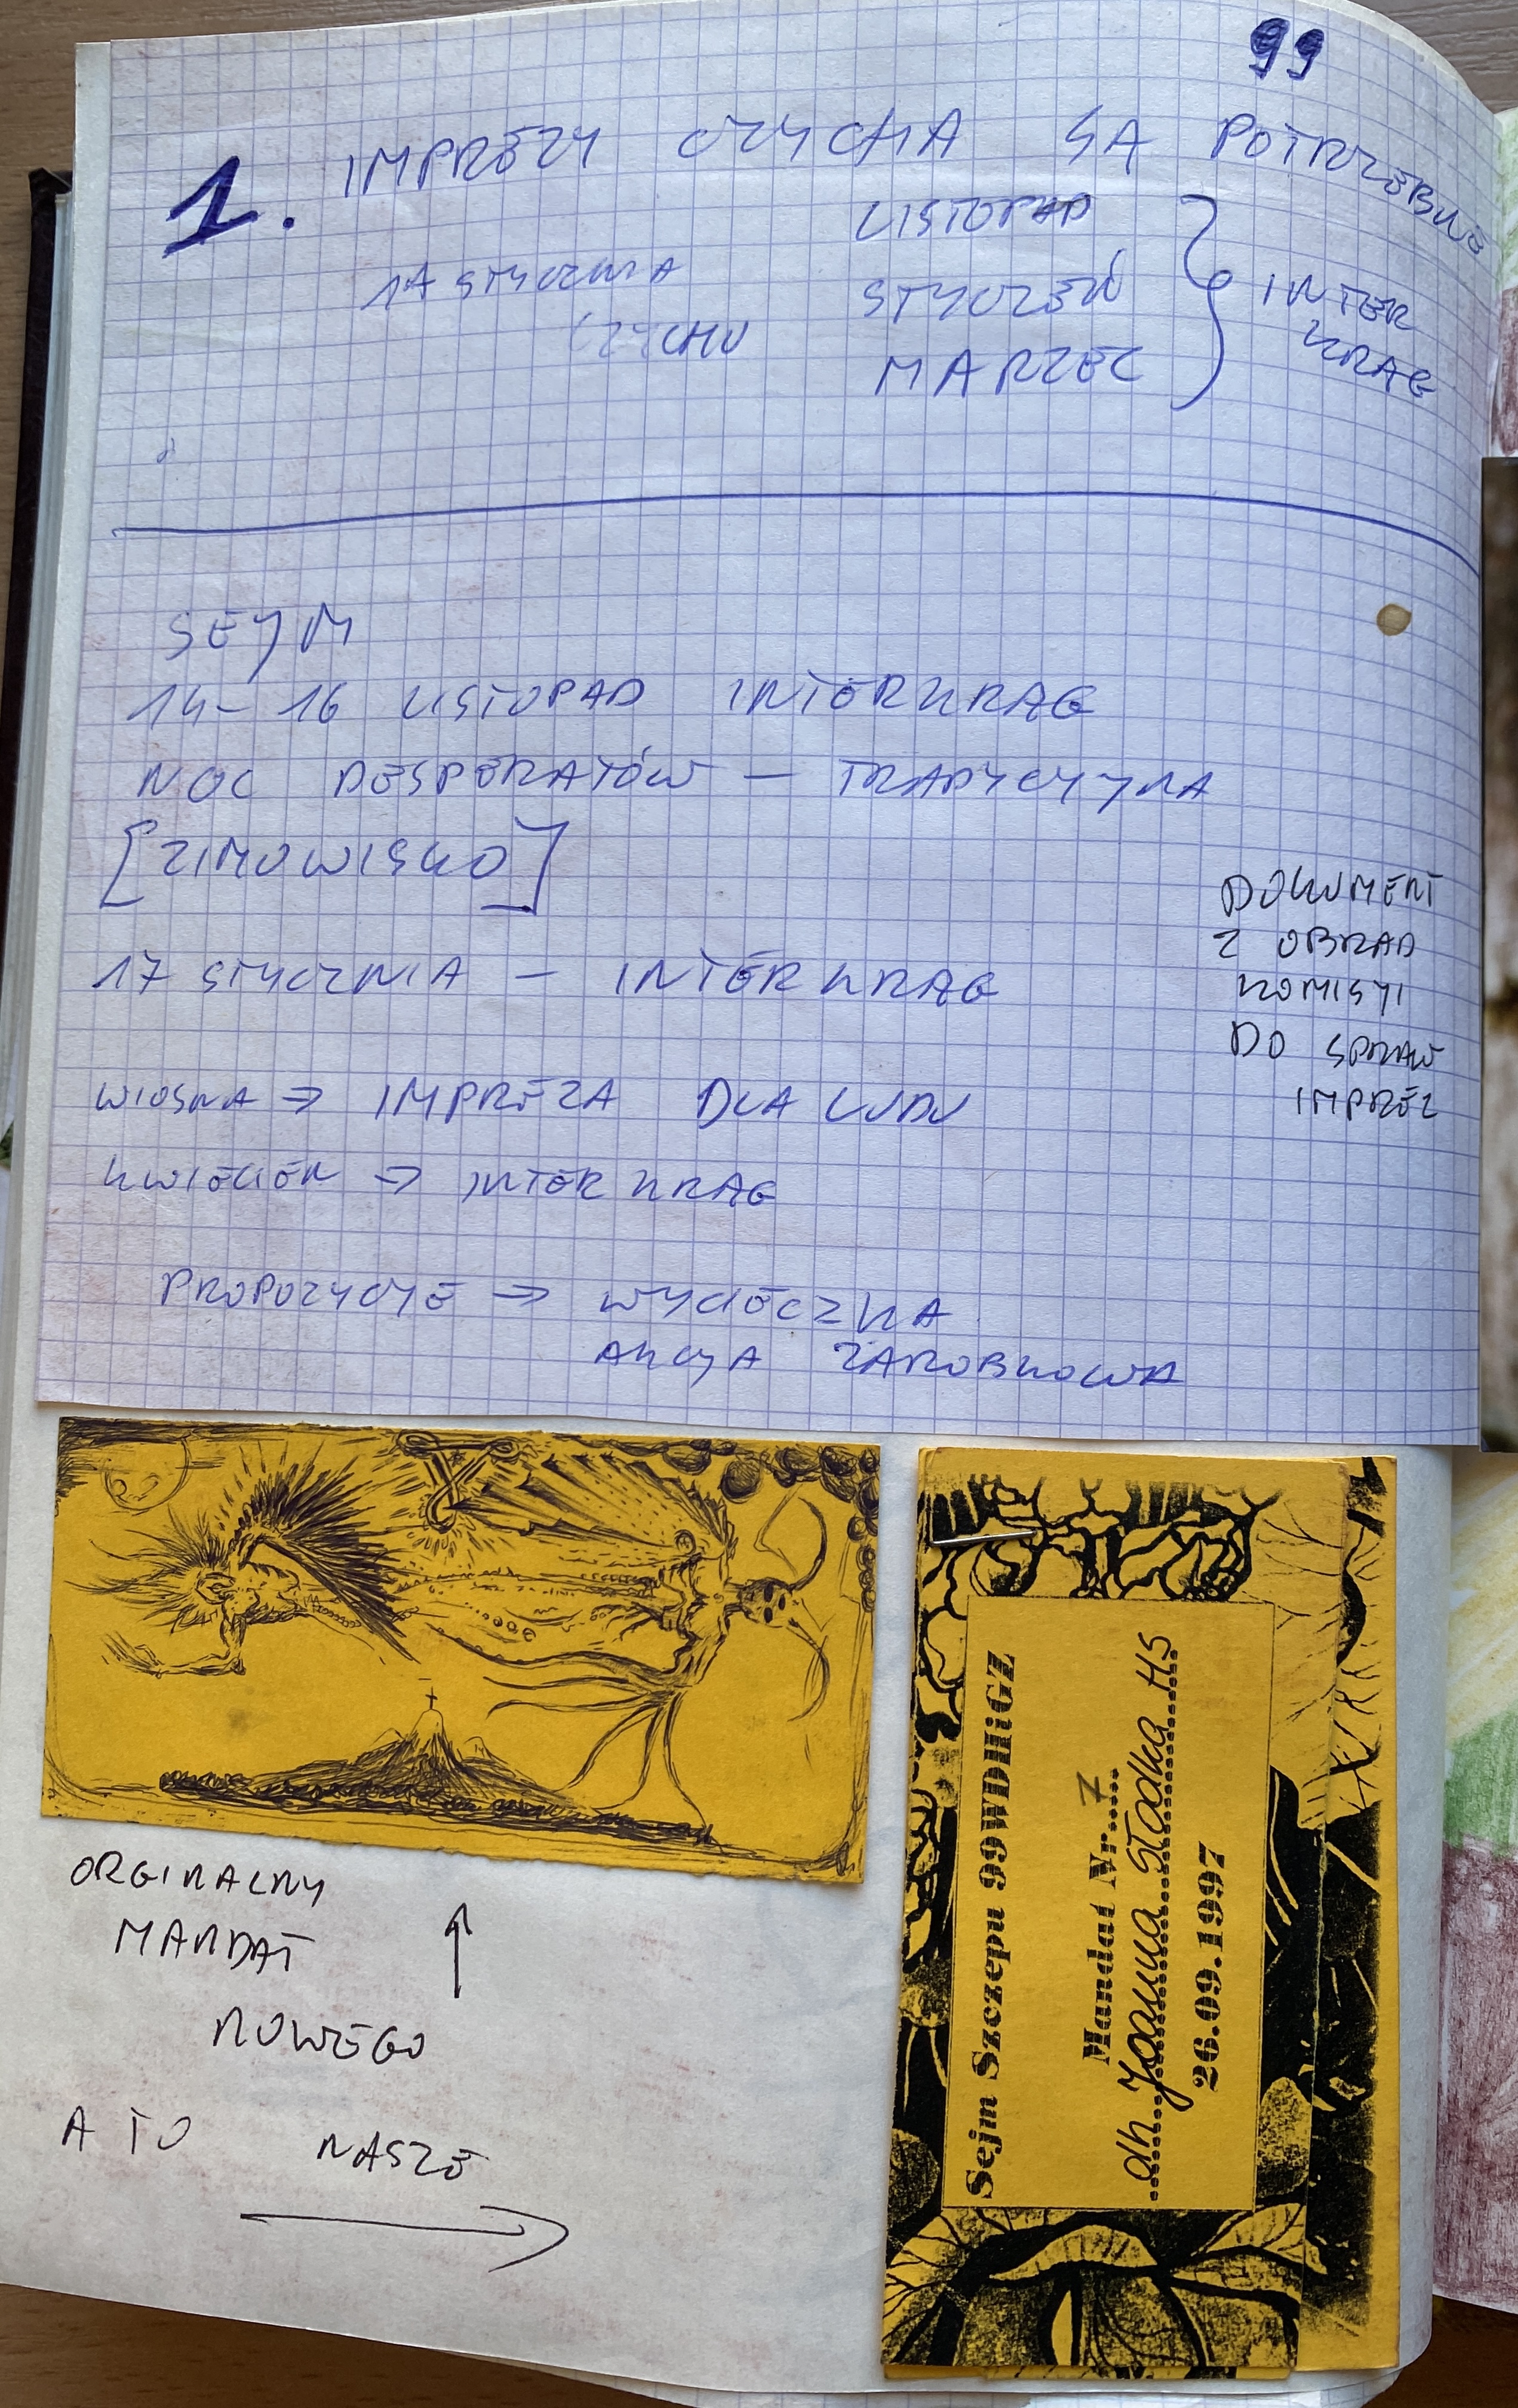 99
1. IMPREZY CZYCHA SĄ POTRZEBNE
LISTOPAD
17 STYCZNIA
STYCZEŃ
CZYCHU
MARZEC
INTER
KRĄG
SEJM
14-16 LISTOPAD INTERKRĄG
NOC DESPERATÓW – TRADYCYJNA
[ZIMOWISKO]
17 STYCZNIA – INTERKRĄG
WIOSNA ⇒ IMPREZA DLA LUDU
KWIECIEŃ ⇒ INTERKRĄG
PROPOZYCJE ⇒ WYCIECZKA
AKCJA ZAROBKOWA
DOKUMENT
Z OBRAD
KOMISJI
DO SPRAW
IMPREZ
ORGINALNY
MANDAT ↑
NOWEGO
A TO NASZE
→
Sejm Szczepu 99WDHiGZ
Mandat Nr....7....
dh. Joanna Stodka HS
26.09.1997